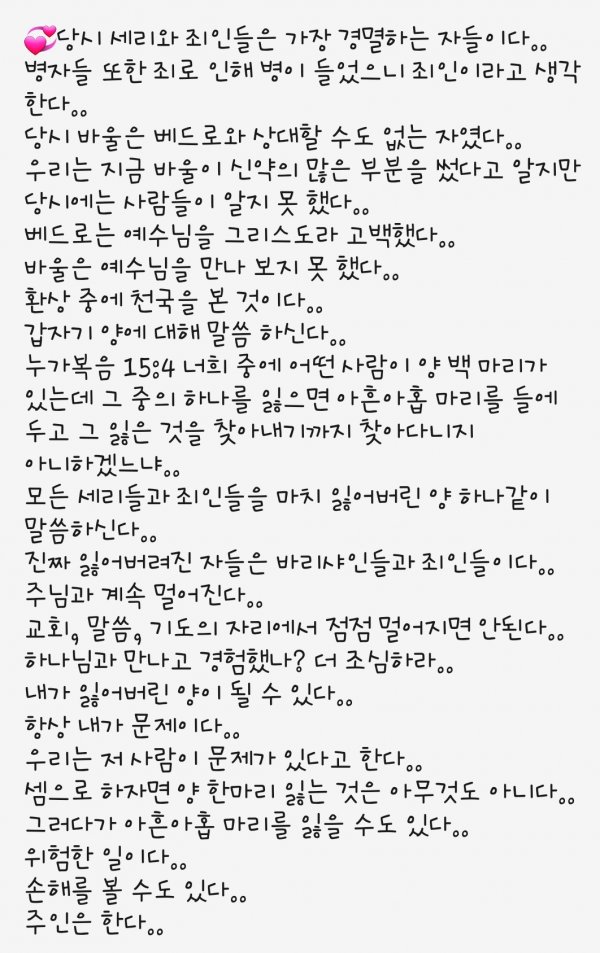 💞당시 세리와 죄인들은 가장 경멸하는 자들이다..
병자들 또한 죄로 인해 병이 들었으니 죄인이라고 생각
한다..
당시 바울은 베드로와 상대할 수도 없는 자였다..
우리는 지금 바울이 신약의 많은 부분을 썼다고 알지만
당시에는 사람들이 알지 못 했다..
베드로는 예수님을 그리스도라 고백했다..
바울은 예수님을 만나 보지 못 했다..
환상 중에 천국을 본 것이다..
갑자기 양에 대해 말씀 하신다..
누가복음 15:4 너희 중에 어떤 사람이 양 백 마리가
있는데 그 중의 하나를 잃으면 아흔아홉 마리를 들에
두고 그 잃은 것을 찾아내기까지 찾아다니지
아니하겠느냐..
모든 세리들과 죄인들을 마치 잃어버린 양 하나같이
말씀하신다..
진짜 잃어버려진 자들은 바리샤인들과 죄인들이다..
주님과 계속 멀어진다..
교회, 말씀, 기도의 자리에서 점점 멀어지면 안된다..
하나님과 만나고 경험했나? 더 조심하라..
내가 잃어버린 양이 될 수 있다..
항상 내가 문제이다..
우리는 저 사람이 문제가 있다고 한다..
셈으로 하자면 양 한마리 잃는 것은 아무것도 아니다..
그러다가 아흔아홉 마리를 잃을 수도 있다..
위험한 일이다..
손해를 볼 수도 있다..
주인은 한다..